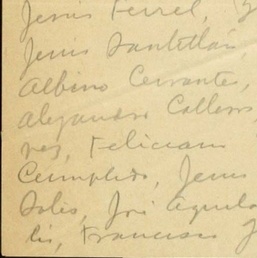 Jesús Ferrel, J
Jesús Santillán,
Albino Cervantes,
Alejandro Calleros
rez, Feliciano
Cumplido, Jesús
Solis, José Aguila
lis, Francisco J